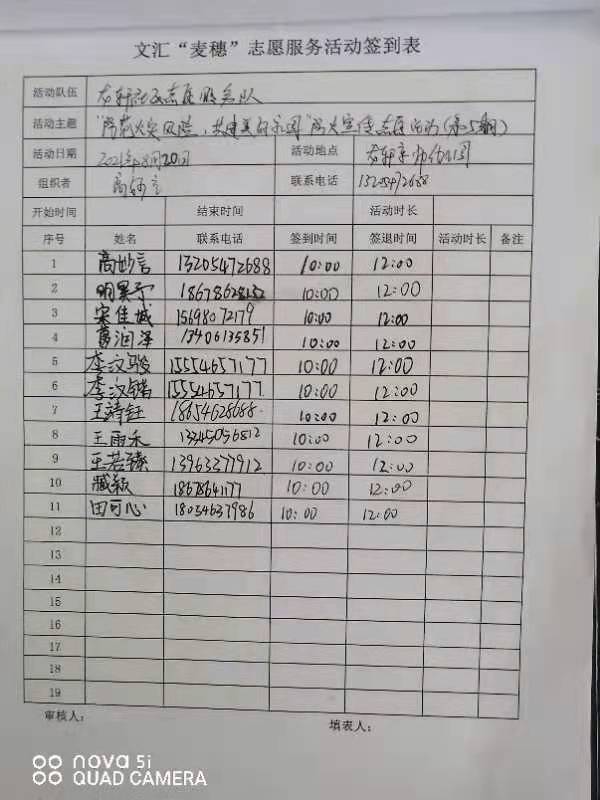 文汇“麦穗”志愿服务活动签到表
活动队伍 志愿服务队
活动主题 “防范火灾风险，共建美好家园”防火宣传志愿活动（第5期）
活动日期 2021年8月20日 活动地点
组织者 高妙言 联系电话 13205472688
开始时间 结束时间 活动时长
序号 姓名 联系电话 签到时间 签退时间 活动时长 备注
1 高妙言 13205472688 10:00 12:00
2 明昊予 10:00 12:00
3 宋佳城 15698072179 10:00 12:00
4 葛润泽 13406135851 10:00 12:00
5 李汶骏 15554657177 10:00 12:00
6 李汶锘 15554657177 10:00 12:00
7 王靖钰 18654628688 10:00 12:00
8 王雨禾 13245056812 10:00 12:00
9 王若臻 13963377912 10:00 12:00
10 臧颖 18678641177 10:00 12:00
11 田可心 18054637986 10:00 12:00
12
13
14
15
16
17
18
19
审核人： 填表人：
nova 5i
QUAD CAMERA